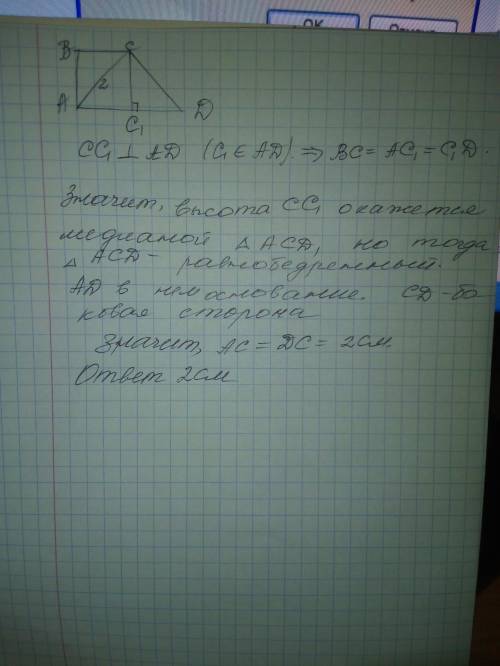 ОК
B C
2
A C₁ D
CC₁ ⊥ AD (C₁ ∈ AD) ⇒ BC = AC₁ = C₁D.
Значит, высота CC₁ окажется
медианой △ ACD, но тогда
△ ACD - равнобедренный.
AD в нем основание. CD - бо
ковая сторона
Значит, AC = DC = 2см.
Ответ 2см